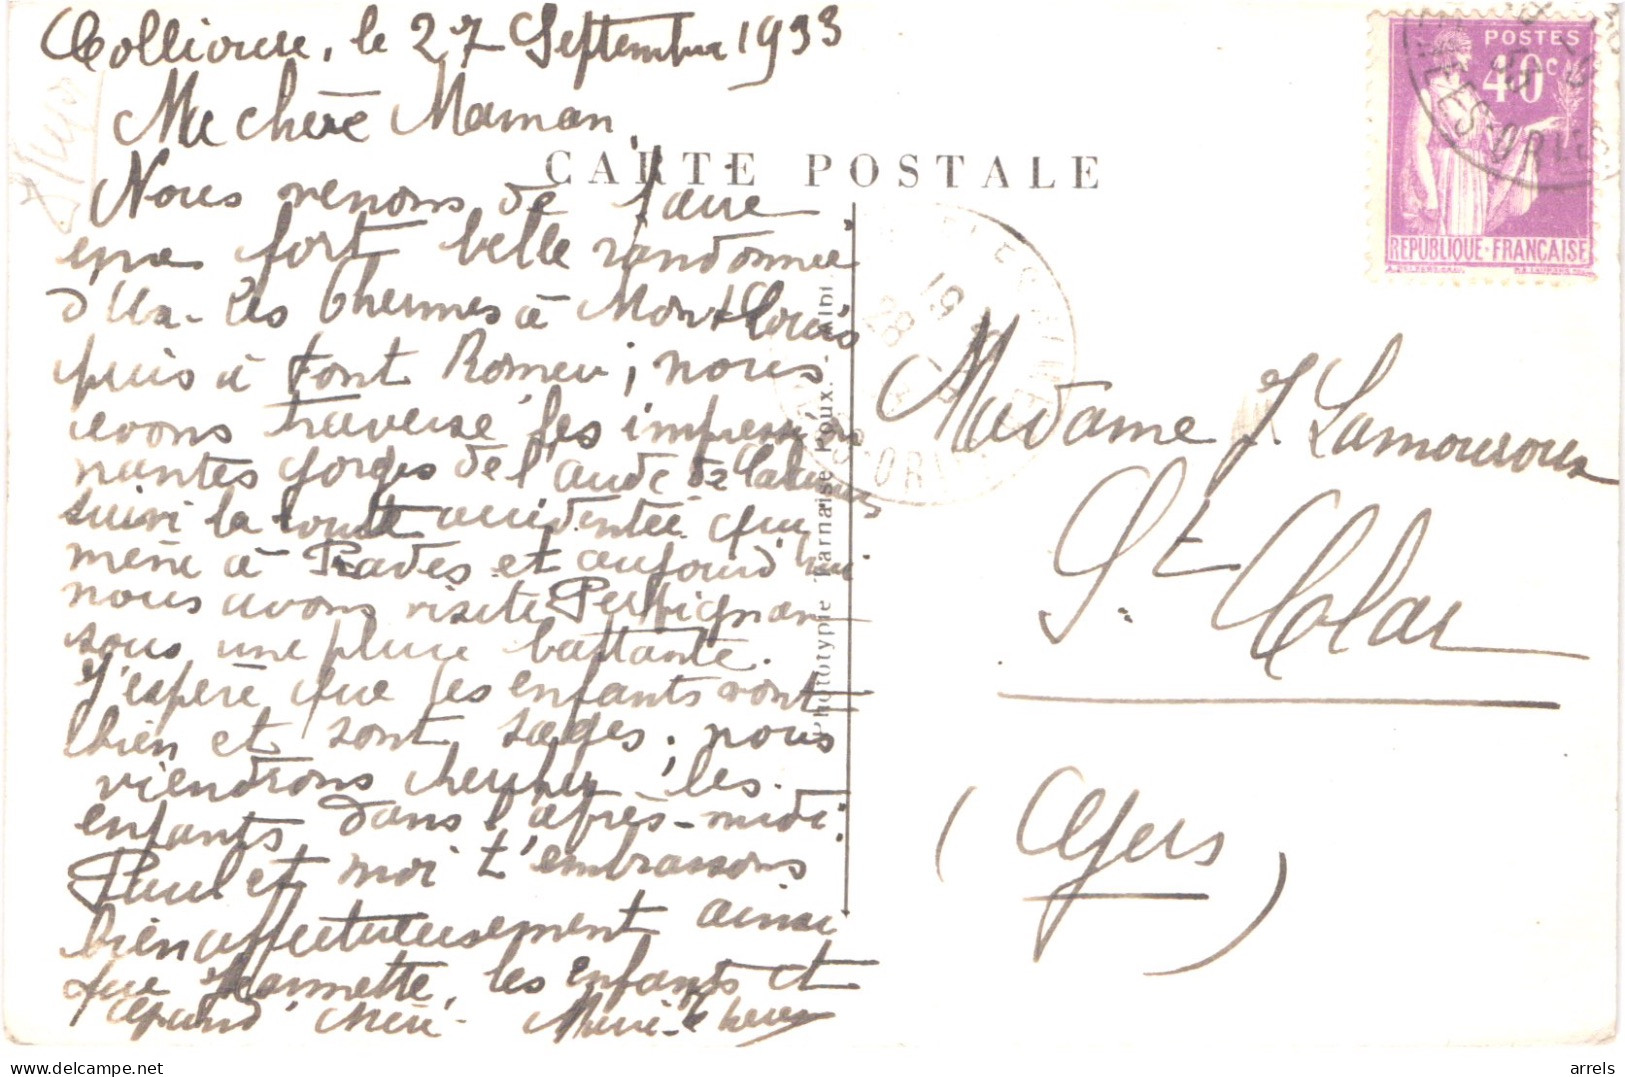 Collioure, le 27 Septembre 1933
Ma chère Maman,
CARTE POSTALE
Nous venons de faire
une fort belle randonnée
d'Ax-les Thermes à Mont Louis
puis à Font Romeu ; nous
avons traversé les impression
nantes gorges de l'Aude de
suivi la route accidentée qui
mène à Prades et aujourd'hui
nous avons visité Perpignan
sous une pluie battante.
J'espère que les enfants vont
bien et sont sages ; nous
viendrons chercher les
enfants dans l'après-midi.
Paul et moi t'embrassons
bien affectueusement ainsi
que Jeannette, les enfants et
Grand' mère - Marie-Thérèse
Phototypie Tarnaise Poux. - Albi
POSTES
40c
REPUBLIQUE·FRANÇAISE
Madame J. Lamouroux
St. Clar
(Gers)
arrels